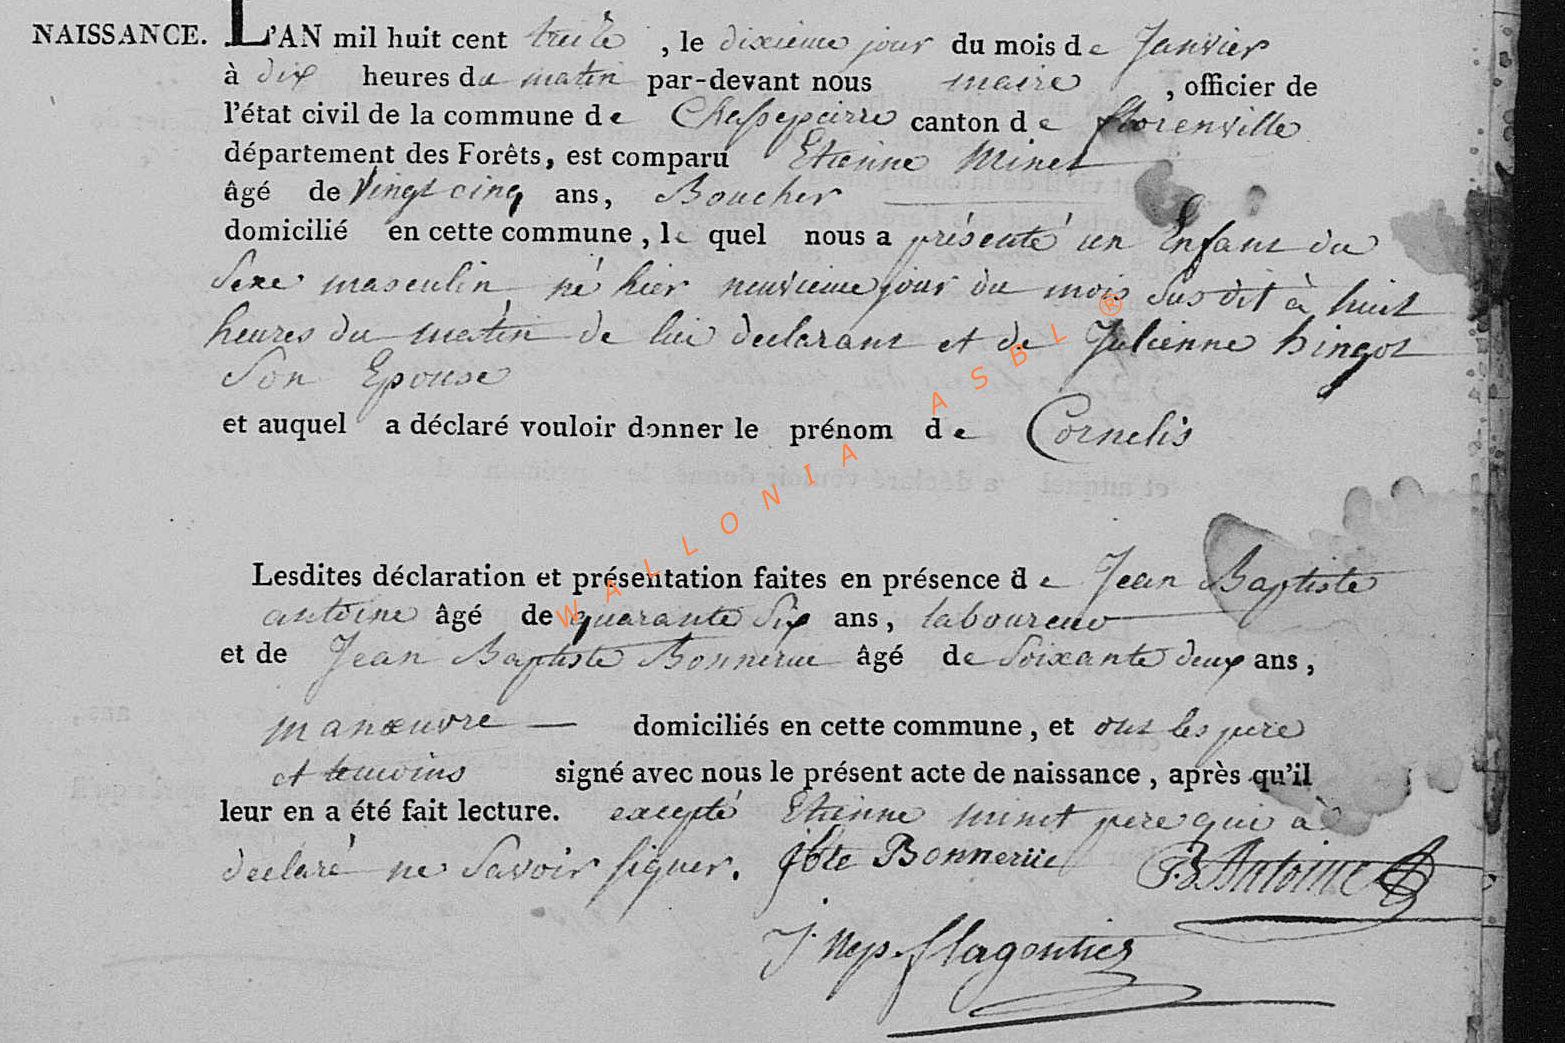 NAISSANCE. L'AN mil huit cent treize, le dixieme jour du mois de Janvier
à dix heures du matin par-devant nous maire, officier de
l'état civil de la commune de Chassepierre canton de florenville
département des Forêts, est comparu Etienne Minet
âgé de Vingt cinq ans, Boucher
domicilié en cette commune, le quel nous a présenté un Enfant du
Sexe masculin né hier neuvieme jour du mois Susdit à huit
heures du matin de lui declarant et de Julienne hingot
Son Epouse
et auquel a déclaré vouloir donner le prénom de Cornelis
Lesdites déclaration et présentation faites en présence de Jean Baptiste
antoine âgé de quarante Six ans, laboureur
et de Jean Baptiste Bonnerue âgé de Soixante deux ans,
manœuvre — domiciliés en cette commune, et ont les pere
et temoins signé avec nous le présent acte de naissance, après qu'il
leur en a été fait lecture. excepté Etienne minet pere qui à
declaré ne Savoir signer. jbte Bonnerüe J.B. Antoine
J. Nep. flagontier
WALLONIA ASBL ®